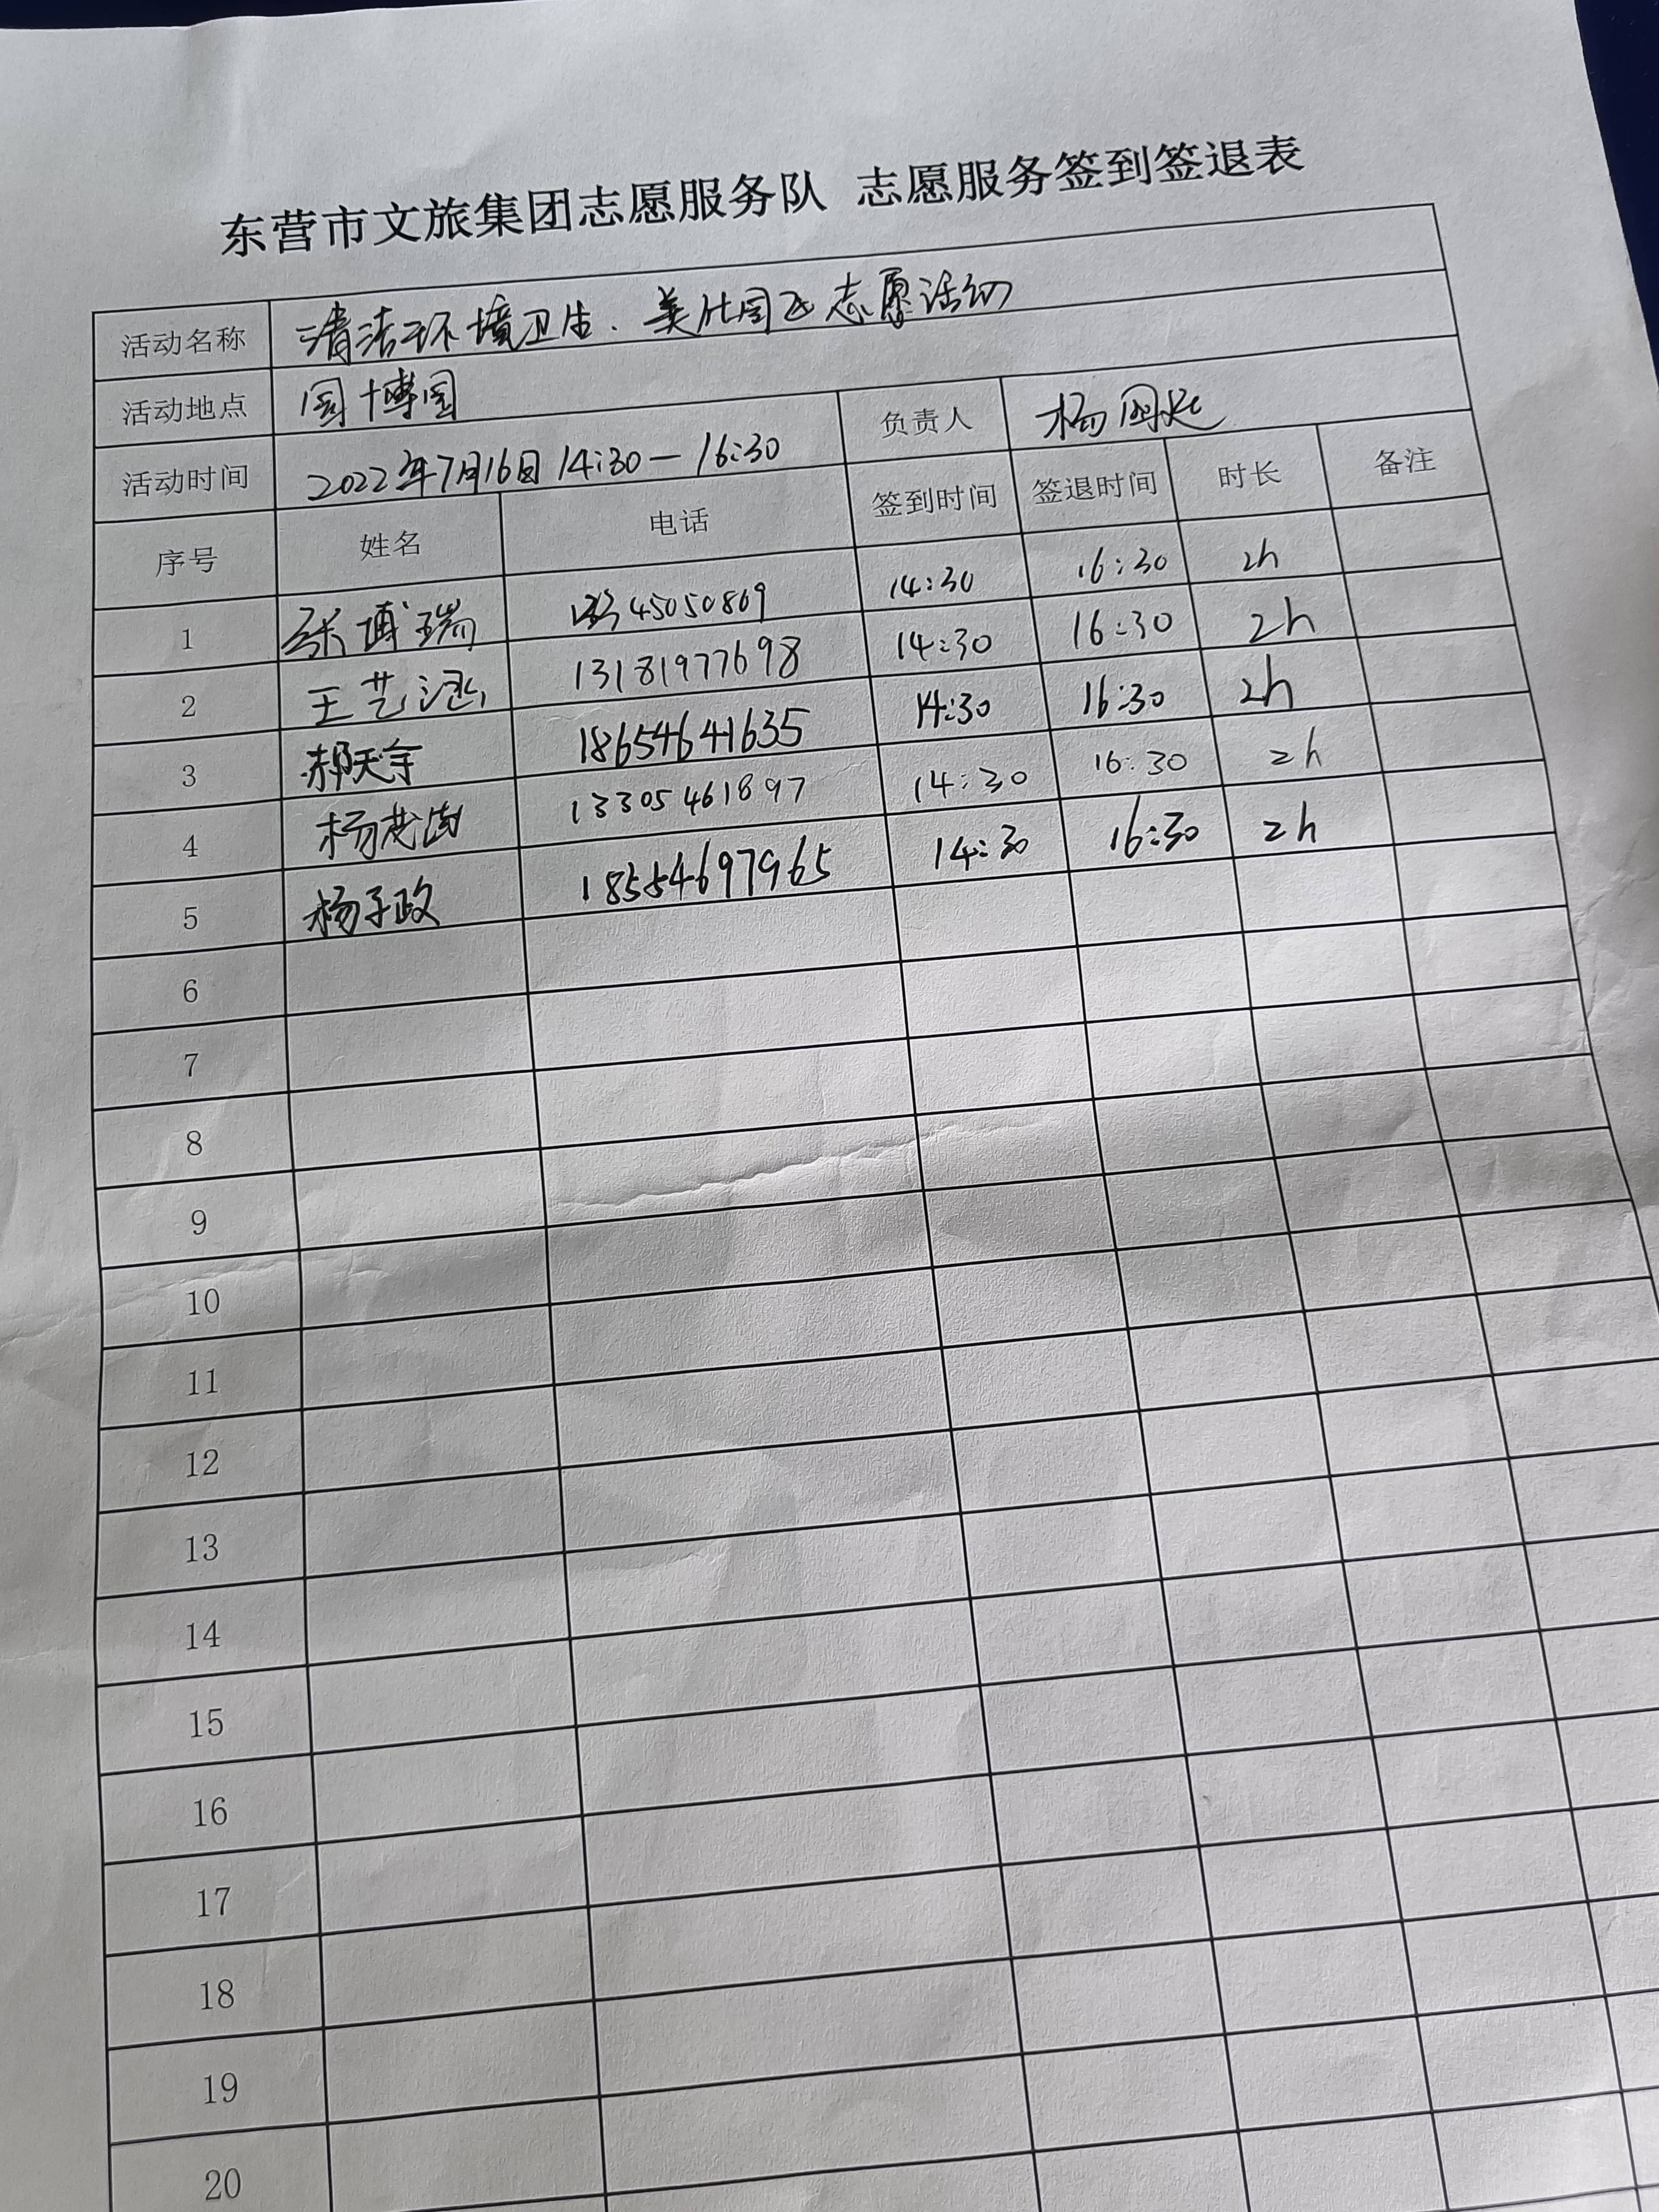 东营市文旅集团志愿服务队 志愿服务签到签退表
活动名称 清洁环境卫生、美化园区志愿活动
活动地点 园博园
活动时间 2022年7月16日 14:30—16:30 负责人 杨
序号 姓名 电话 签到时间 签退时间 时长 备注
1 张博瑞 45050869 14:30 16:30 2h
2 王艺 13181977698 14:30 16:30 2h
3 郝天宇 18654641635 14:30 16:30 2h
4 杨茂 13305461897 14:30 16:30 2h
5 杨子政 18554697965 14:30 16:30 2h
6
7
8
9
10
11
12
13
14
15
16
17
18
19
20